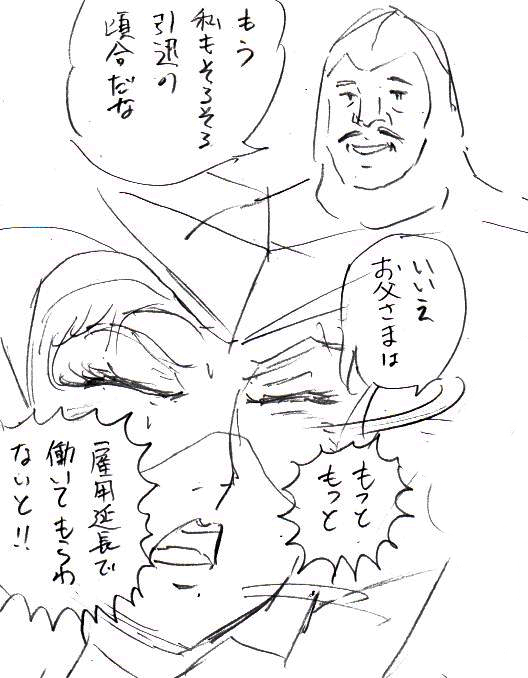 もう
私もそろそろ
引退の
頃合だな
いいえ
お父さまは
もっと
もっと
雇用延長で
働いてもらわ
ないと!!